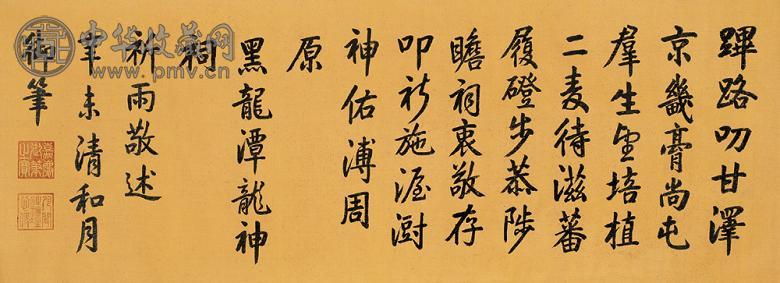 蹕路叨甘澤
京畿膏尚屯
羣生望培植
二麦待滋蕃
履磴步恭陟
瞻祠衷敬存
叩祈施渥澍
神佑溥周
原
黑龍潭龍神
祠
祈雨敬述
辛未清和月
御筆
中华收藏网
www.pmv.cn